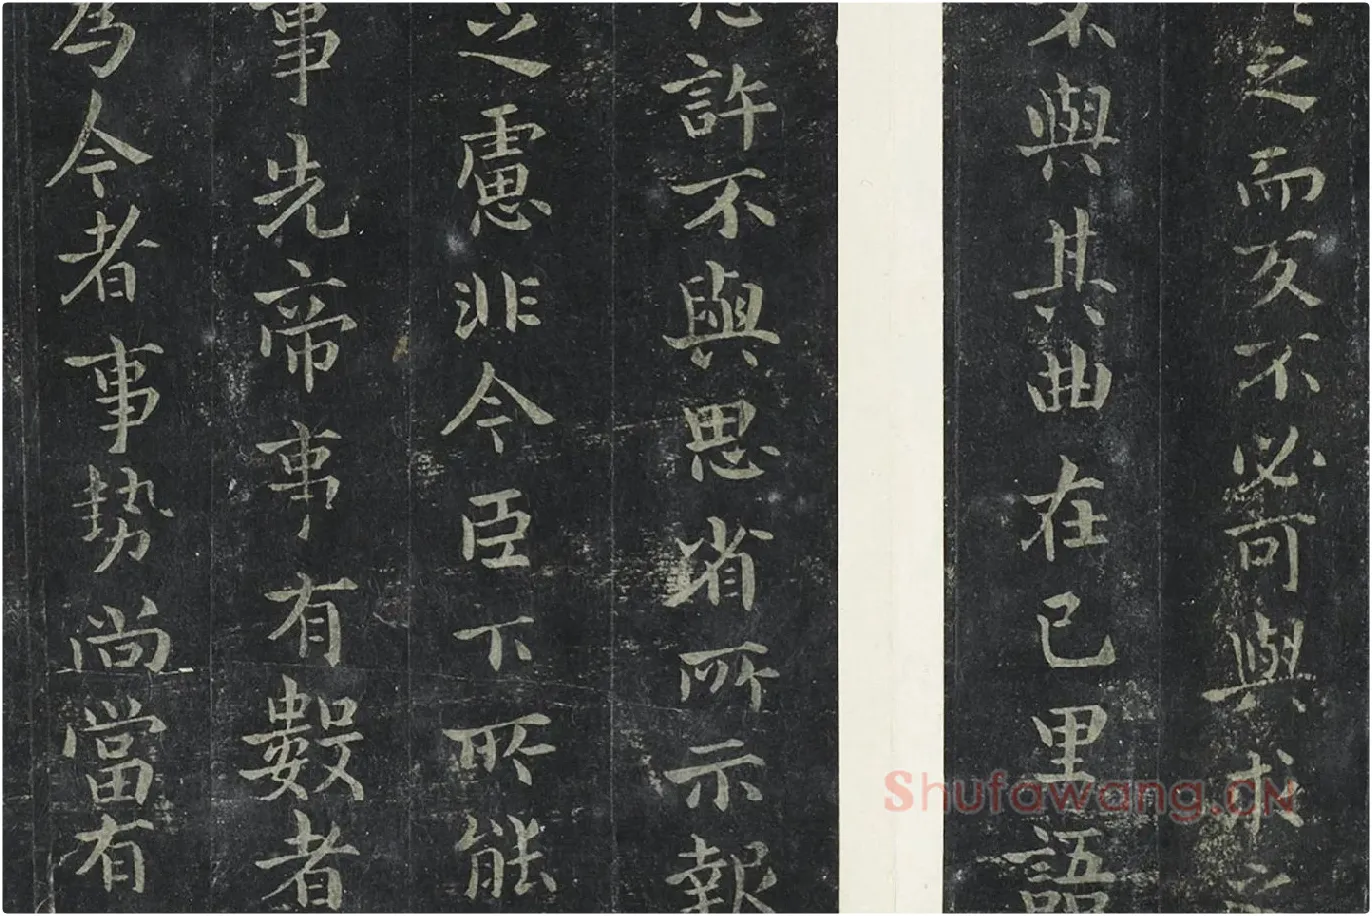 之而反不必可與求之
不與其曲在己里語
許不與思省所示報
之慮非今臣下所能
事先帝事有數者
為今者事勢尚當有
Shufawang.CN